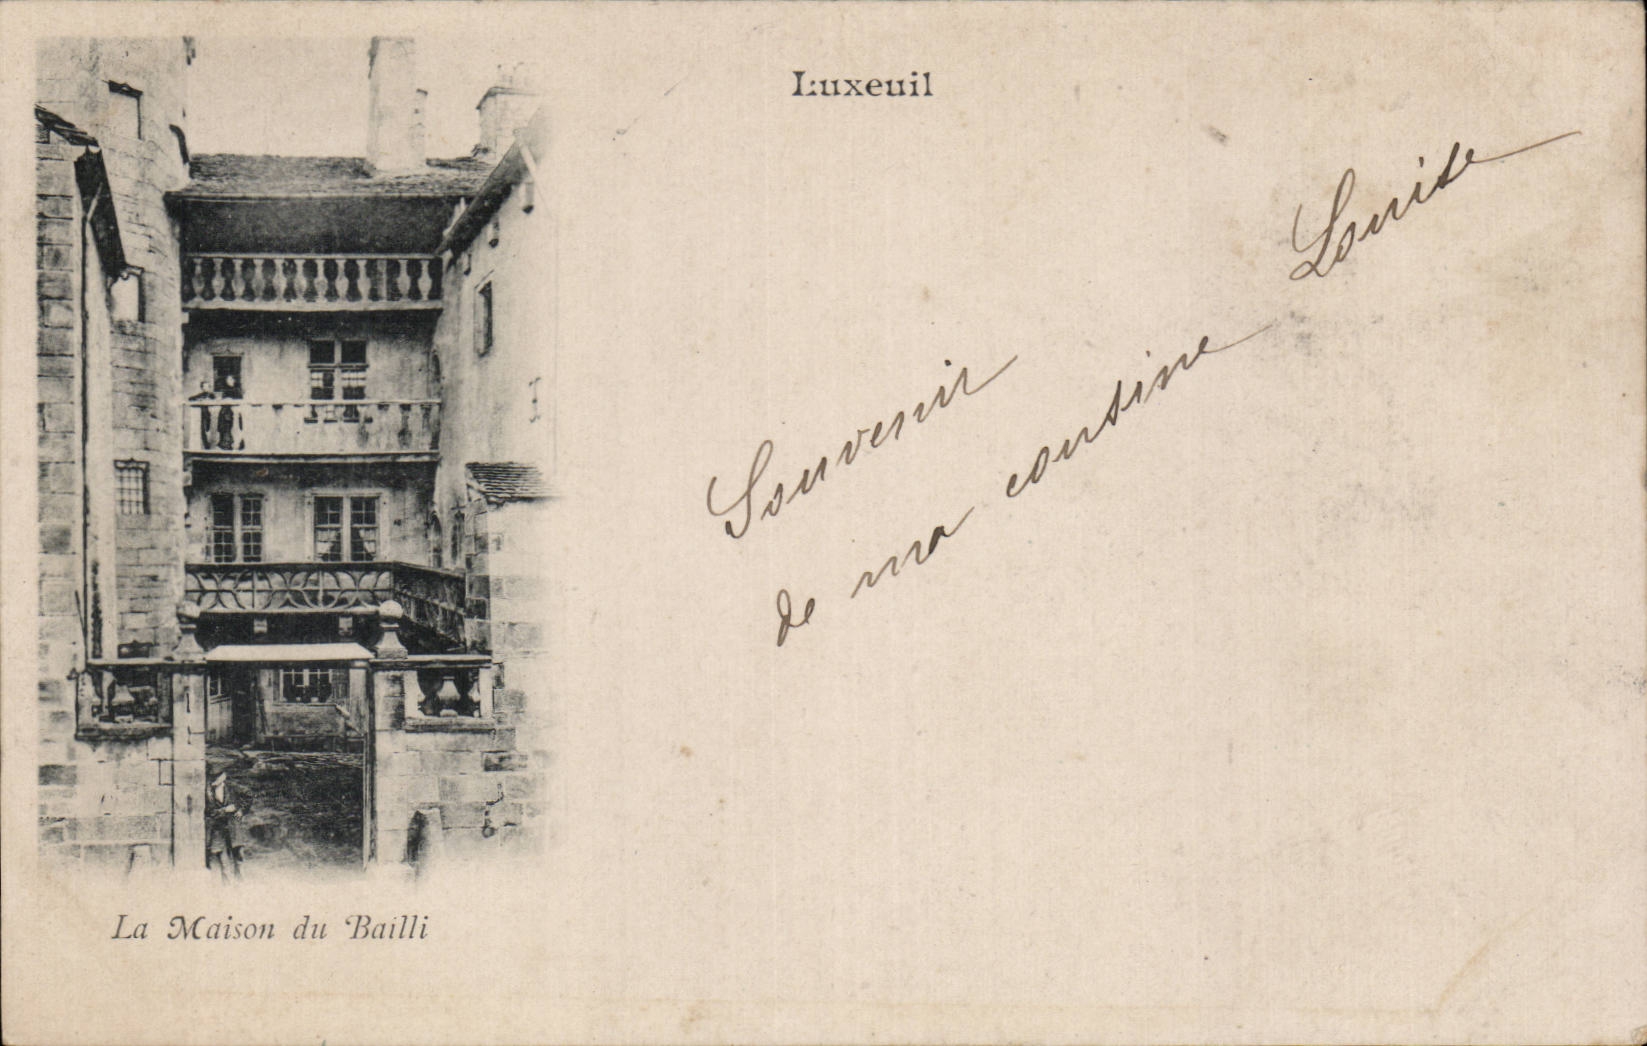 Luxeuil
Souvenir
de ma cousine Louise
La Maison du Bailli